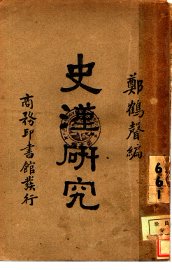 鄭鶴聲編
史漢研究
商務印書館發行